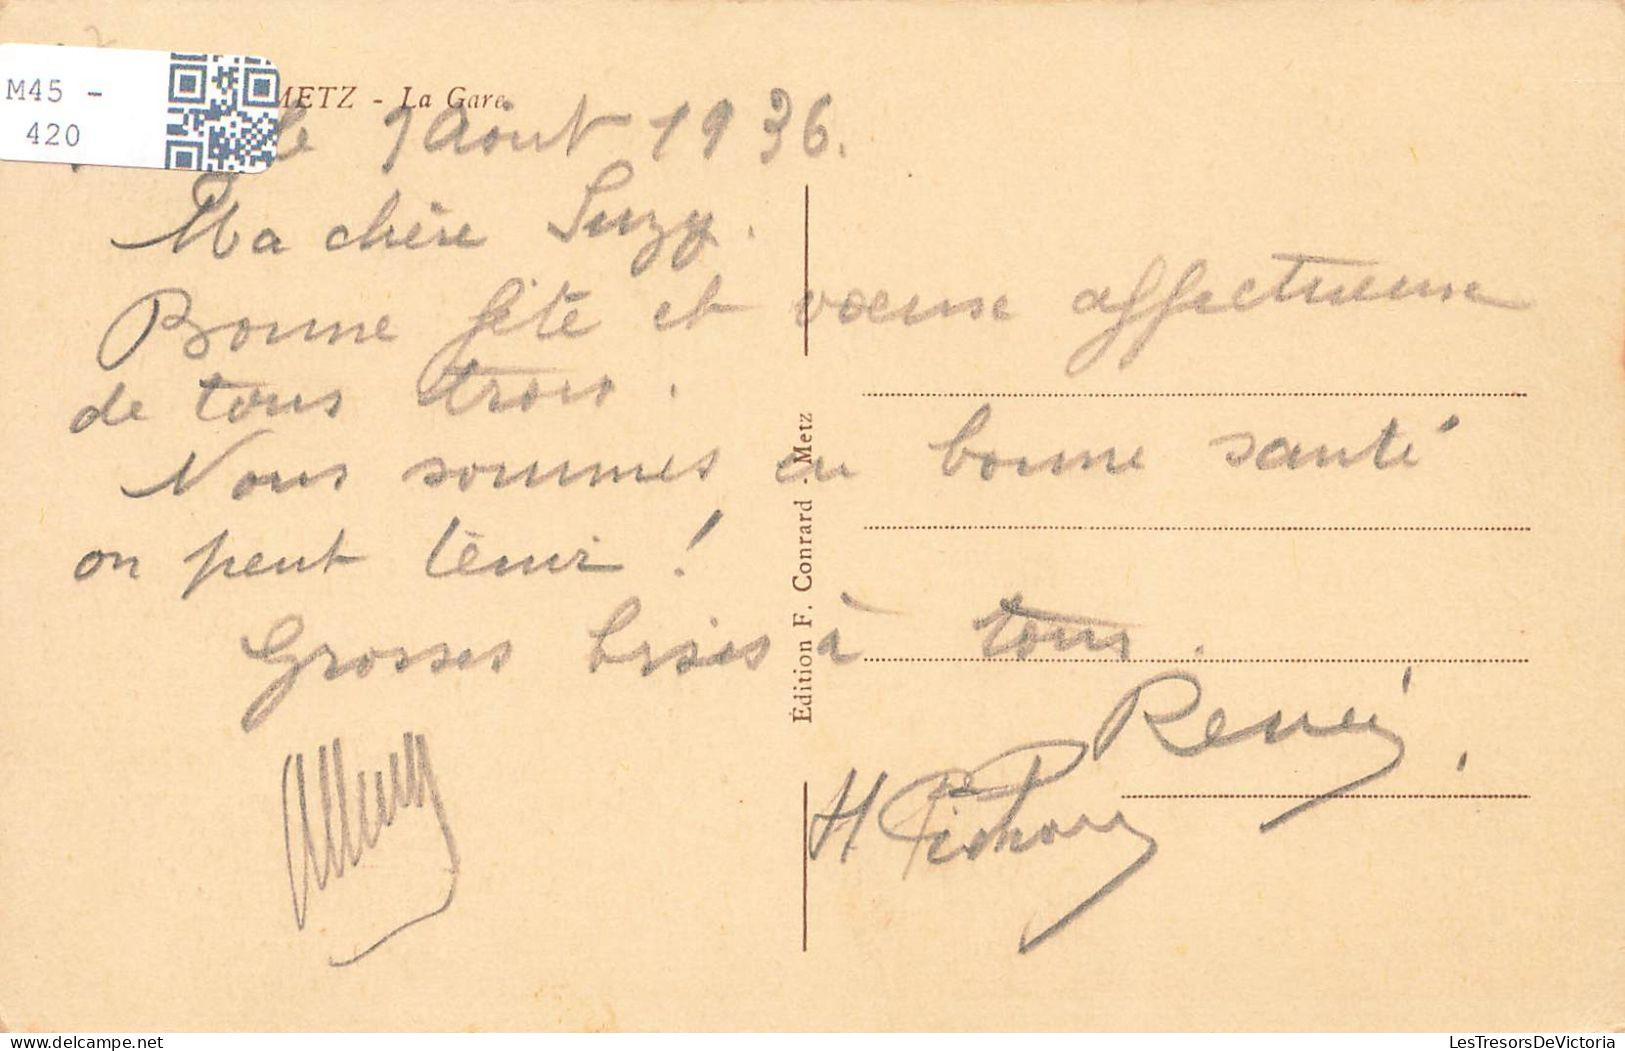 M45 -
420
METZ - La Gare
le 7 Août 1936.
Ma chère Suzy.
Bonne fête et voeux affectueux
de tous trois.
Nous sommes en bonne santé
on peut tenir !
Grosses bises à tous.
René
H
Édition F. Conrard - Metz
LesTresorsDeVictoria
delcampe.net